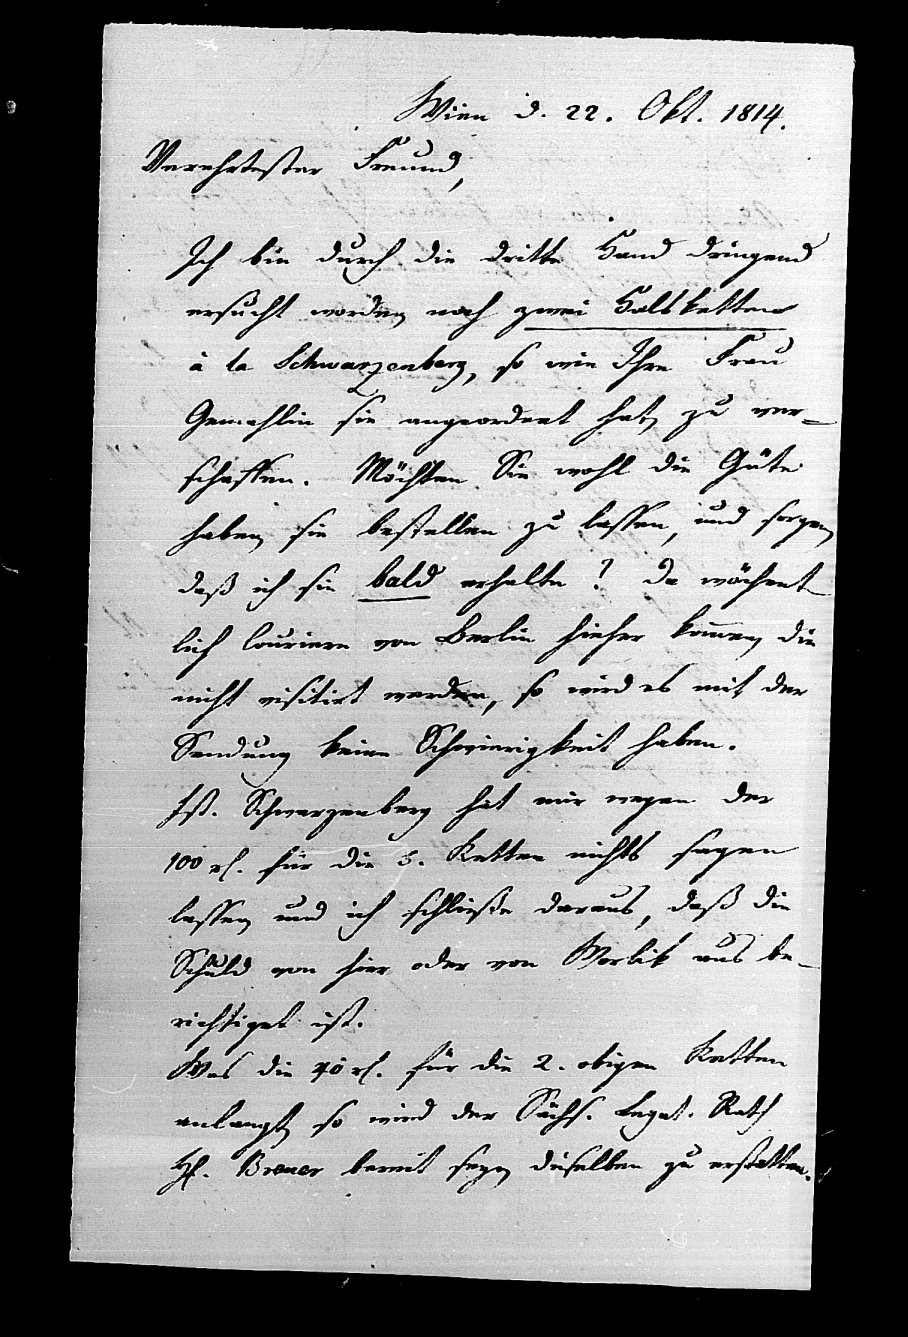 Wien d. 22. Okt. 1814.
Verehrtester Freund,
Ich bin durch die dritte Hand dringend
ersucht worden noch zwei Halsketten
à la Schwarzenberg, so wie Ihre Frau
Gemahlin sie angeordnet hat, zu ver-
schaffen. Möchten Sie wohl die Güte
haben sie bestellen zu lassen, und sorgen,
daß ich sie bald erhalte? Da wöchent-
lich Couriere von Berlin hieher kommen, die
nicht visitirt werden, so wird es mit der
Sendung keine Schwierigkeit haben.
Fst. Schwarzenberg hat mir wegen der
100 rl. für die 5. Ketten nichts sagen
lassen und ich schließe daraus, daß die
Schuld von hier oder von Worlik aus be-
richtiget ist.
Was die 40 rl. für die 2. obigen Ketten
anlangt, so wird der Sächs. Legat. Rath
H. Breuer bereit seyn dieselben zu erstatten.